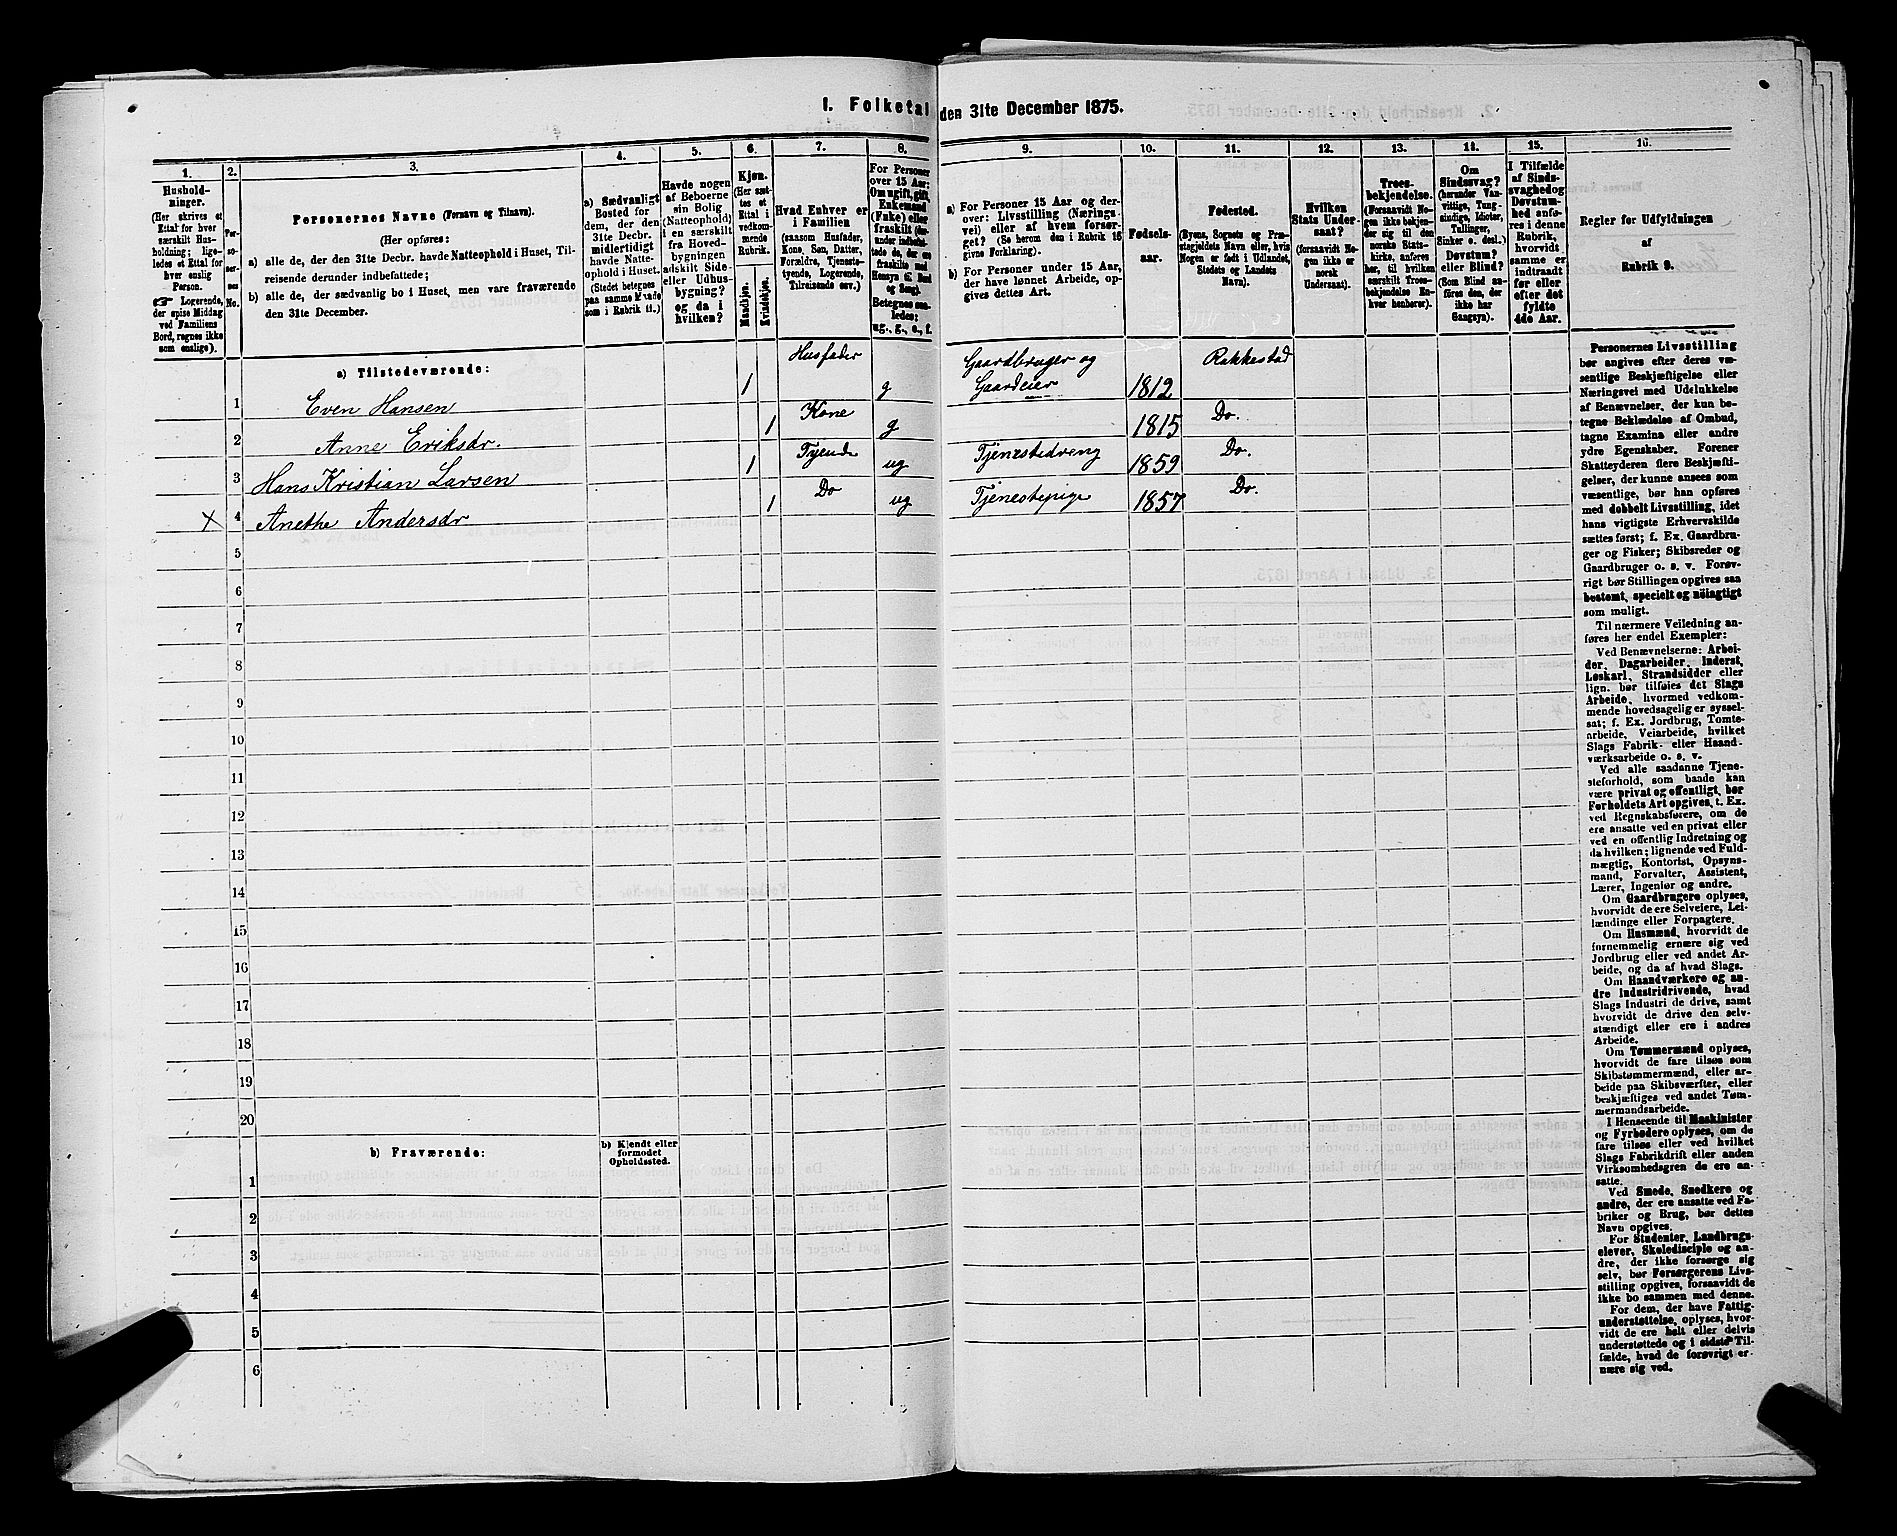 I. Folketal den 31te December 1875.
1.
2.
3.
4.
5.
6.
7.
8.
9.
10.
11.
12.
13.
14.
15.
16.
Hushold-
ninger.
(Her skrives et
Ettal for hver
særskilt Hus-
holdning; lige-
ledes et Ettal for
hver enslig
Person.
☞ Logerende,
der spise Middag
ved Familiens
Bord, regnes ikke
som enslige).
Per-
so-
ner-
nes
No.
Personernes Navne (Fornavn og Tilnavn).
(Her opføres:
a) alle de, der den 31te Decbr. havde Natteophold i Huset, Til-
reisende derunder indbefattede;
b) alle de, der sædvanlig bo i Huset, men vare fraværende
den 31te December.
a) Sædvanligt
Bosted for
dem, der den
31te Decbr.
midlertidigt
havde Natte-
ophold i Huset.
(Stedet betegnes
paa samme Maade
som i Rubrik 11.)
Havde nogen
af Beboerne
sin Bolig
(Natteophold)
i en særskilt
fra Hoved-
bygningen
adskilt Side-
eller Udhus-
bygning?
og da i
hvilken?
Kjøn.
(Her sæt-
tes et
Ettal i
vedkom-
mende
Rubrik.
Mandkjøn.
Kvindekjøn.
Hvad Enhver er
i Familien
(saasom Husfader,
Kone, Søn, Datter,
Forældre, Tjeneste-
tyende, Logerende,
Tilreisende osv.)
For Personer
over 15 Aar:
Om ugift, gift,
Enkemand
(Enke) eller
fraskilt
Betegnes saa-
ledes:
ug., g., e., f.
a) For Personer 15 Aar og der-
over: Livsstilling (Nærings-
vei) eller af hvem forsør-
get? (Se herom den i Rubrik 16
givne Forklaring).
b) For Personer under 15 Aar,
der have lønnet Arbeide, op-
gives dettes Art.
Fødsels-
aar.
Fødested.
(Byens, Sognets og Præ-
stegjeldets Navn eller, hvis
Nogen er født i Udlandet,
Stedets og Landets
Navn).
Hvilken
Stats Under-
saat?
(forsaavidt No-
gen ikke er
norsk
Undersaat).
Troes-
bekjendelse.
(Forsaavidt No-
gen ikke bekjen-
der sig til den
norske Stats-
kirke, anføres
her, til hvilken
særskilt Troes-
bekjendelse En-
hver henhører).
Om
Sindssvag?
(herunder Van-
vittige, Tung-
sindige, Idioter,
Tullinger,
Sinker o. desl.)
Døvstum?
eller Blind?
(Som Blind an-
føres den, der
ikke har
Gangsyn).
I Tilfælde
af Sinds-
svaghed og
Døvstum-
hed anfø-
res i denne
Rubrik,
hvorvidt
samme er
indtraadt
før eller
efter det
fyldte
4de Aar.
Regler for Udfyldningen
af
Rubrik 9.
a) Tilstedeværende:
1 Even Hansen 1 Husfader g Gaardbruger og Gaardeier 1812 Rakkestad
2 Anne Eriksdr. 1 Kone g 1815 Do.
3 Hans Kristian Larsen 1 Tyende ug Tjenestedreng 1859 Do.
X 4 Anethe Andersdr 1 Do ug Tjenestepige 1857 Do.
5
6
7
8
9
10
11
12
13
14
15
16
17
18
19
20
b) Fraværende:
b) Kjendt eller
formodet
Opholdssted.
1
2
3
4
5
6
Personernes Livsstilling
bør angives efter deres væ-
sentlige Beskjæftigelse eller
Næringsvei med Udelukkelse
af Benævnelser, der kun be-
tegne Beklædelse af Ombud,
tagne Examina eller andre
ydre Egenskaber. Forener
Skatteyderen flere Beskjæfti-
gelser, der kunne ansees som
væsentlige, bør han opføres
med dobbelt Livsstilling, idet
hans vigtigste Erhvervskilde
sættes først; f. Ex. Gaardbru-
ger og Fisker; Skibsreder og
Gaardbruger o. s. v. Forøv-
rigt bør Stillingen opgives saa
bestemt, specielt og nøiagtigt
som muligt.
Til nærmere Veiledning an-
føres her endel Exempler:
Ved Benævnelserne: Arbei-
der, Dagarbeider, Inderst,
Løskarl, Strandsidder eller
lign. bør tilføies det Slags
Arbeide, hvormed vedkom-
mende hovedsagelig er syssel-
sat; f. Ex. Jordbrug, Tomte-
arbeide, Veiarbeide, hvilket
Slags Fabrik- eller Haand-
værksarbeide o. s. v.
Ved alle saadanne Tjene-
steforhold, som baade kan
være privat og offentligt, bør
Forholdets Art opgives, t. Ex.
ved Regnskabsførere, om de
ere ansatte ved en privat eller
ved en offentlig Indretning og
da hvilken; lignende ved Fuld-
mægtig, Kontorist, Opsyns-
mand, Forvalter, Assistent,
Lærer, Ingeniør og andre.
Om Gaardbrugere oplyses,
hvorvidt de ere Selveiere, Lei-
lændinge eller Forpagtere.
Om Husmænd, hvorvidt de
fornemmelig ernære sig ved
Jordbrug eller ved andet Ar-
beide, og da af hvad Slags.
Om Haandværkere og an-
dre Industridrivende, hvad
Slags Industri de drive, samt
hvorvidt de drive den selv-
stændigt eller ere i andres
Arbeide.
Om Tømmermænd oplyses,
hvorvidt de fare tilsøs som
Skibstømmermænd, eller ar-
beide paa Skibsværfter, eller
beskjæftiges ved andet Tøm-
mermandsarbeide.
I Henseende til Maskinister
og Fyrbødere oplyses, om de
fare tilsøs eller ved hvilket
Slags Fabrikdrift eller anden
Virksomhedsgren de ere an-
satte.
Ved Smede, Snedkere og
andre, der ere ansatte ved Fa-
briker og Brug, bør dettes
Navn opgives.
For Studenter, Landbrugs-
elever, Skoledisciple og an-
dre, der ikke forsørge sig
selv, bør Forsørgerens Livs-
stilling opgives, forsaavidt de
ikke bo sammen med denne.
For dem, der have Fattig-
understøttelse, oplyses, hvor-
vidt de ere helt eller delvis
understøttede og i sidste Til-
fælde, hvad de forøvrigt er-
nære sig ved.